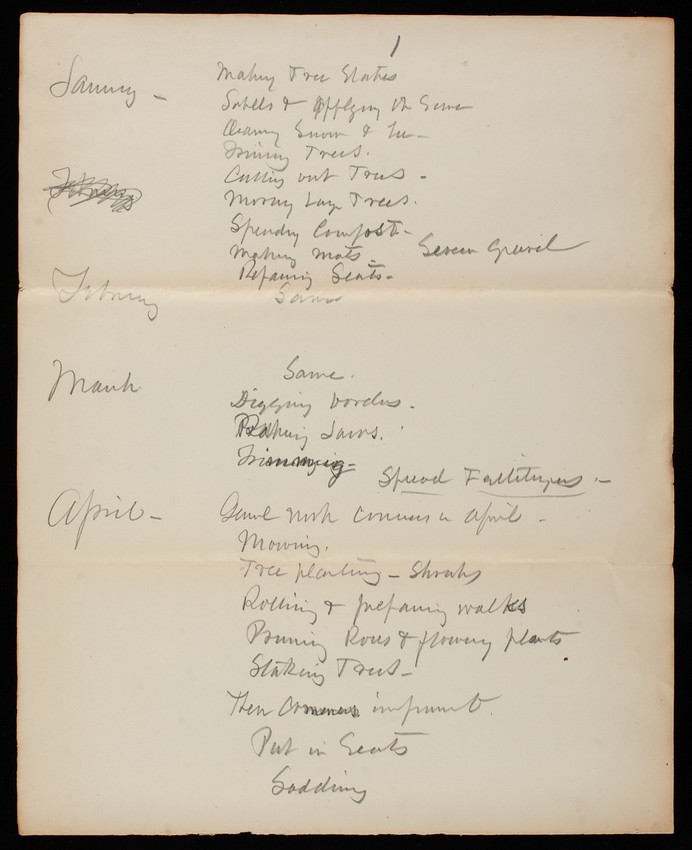 1
January - Making Tree Stakes
Labells & applying the Same
Cleaning Snow & Ice -
Trimming Trees.
Cutting out Trees -
February
Moving Large Trees.
Spreading Compost -
Making mats - Screen Gravel
Repairing Seats -
February Same
March Same.
Digging borders -
Raking Lawns.
Trimming -
Spread Fertilizers -
April - Same work commences in April -
Mowing.
Tree planting - Shrubs
Rolling & preparing walks
Pruning Roses & flowering plants
Staking Trees -
Then commences
Put in Seats
Sodding